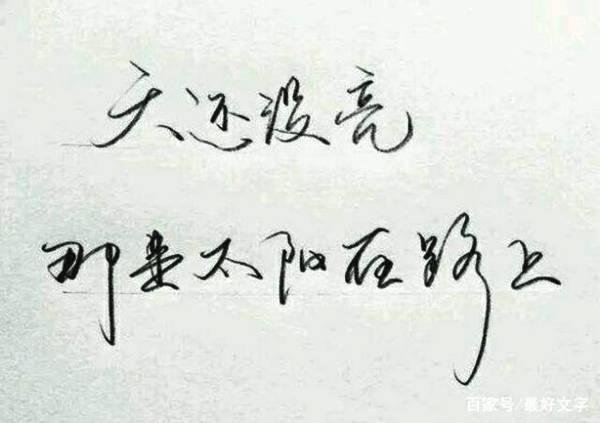 天还没亮
那是太阳在路上
百家号/最好文字